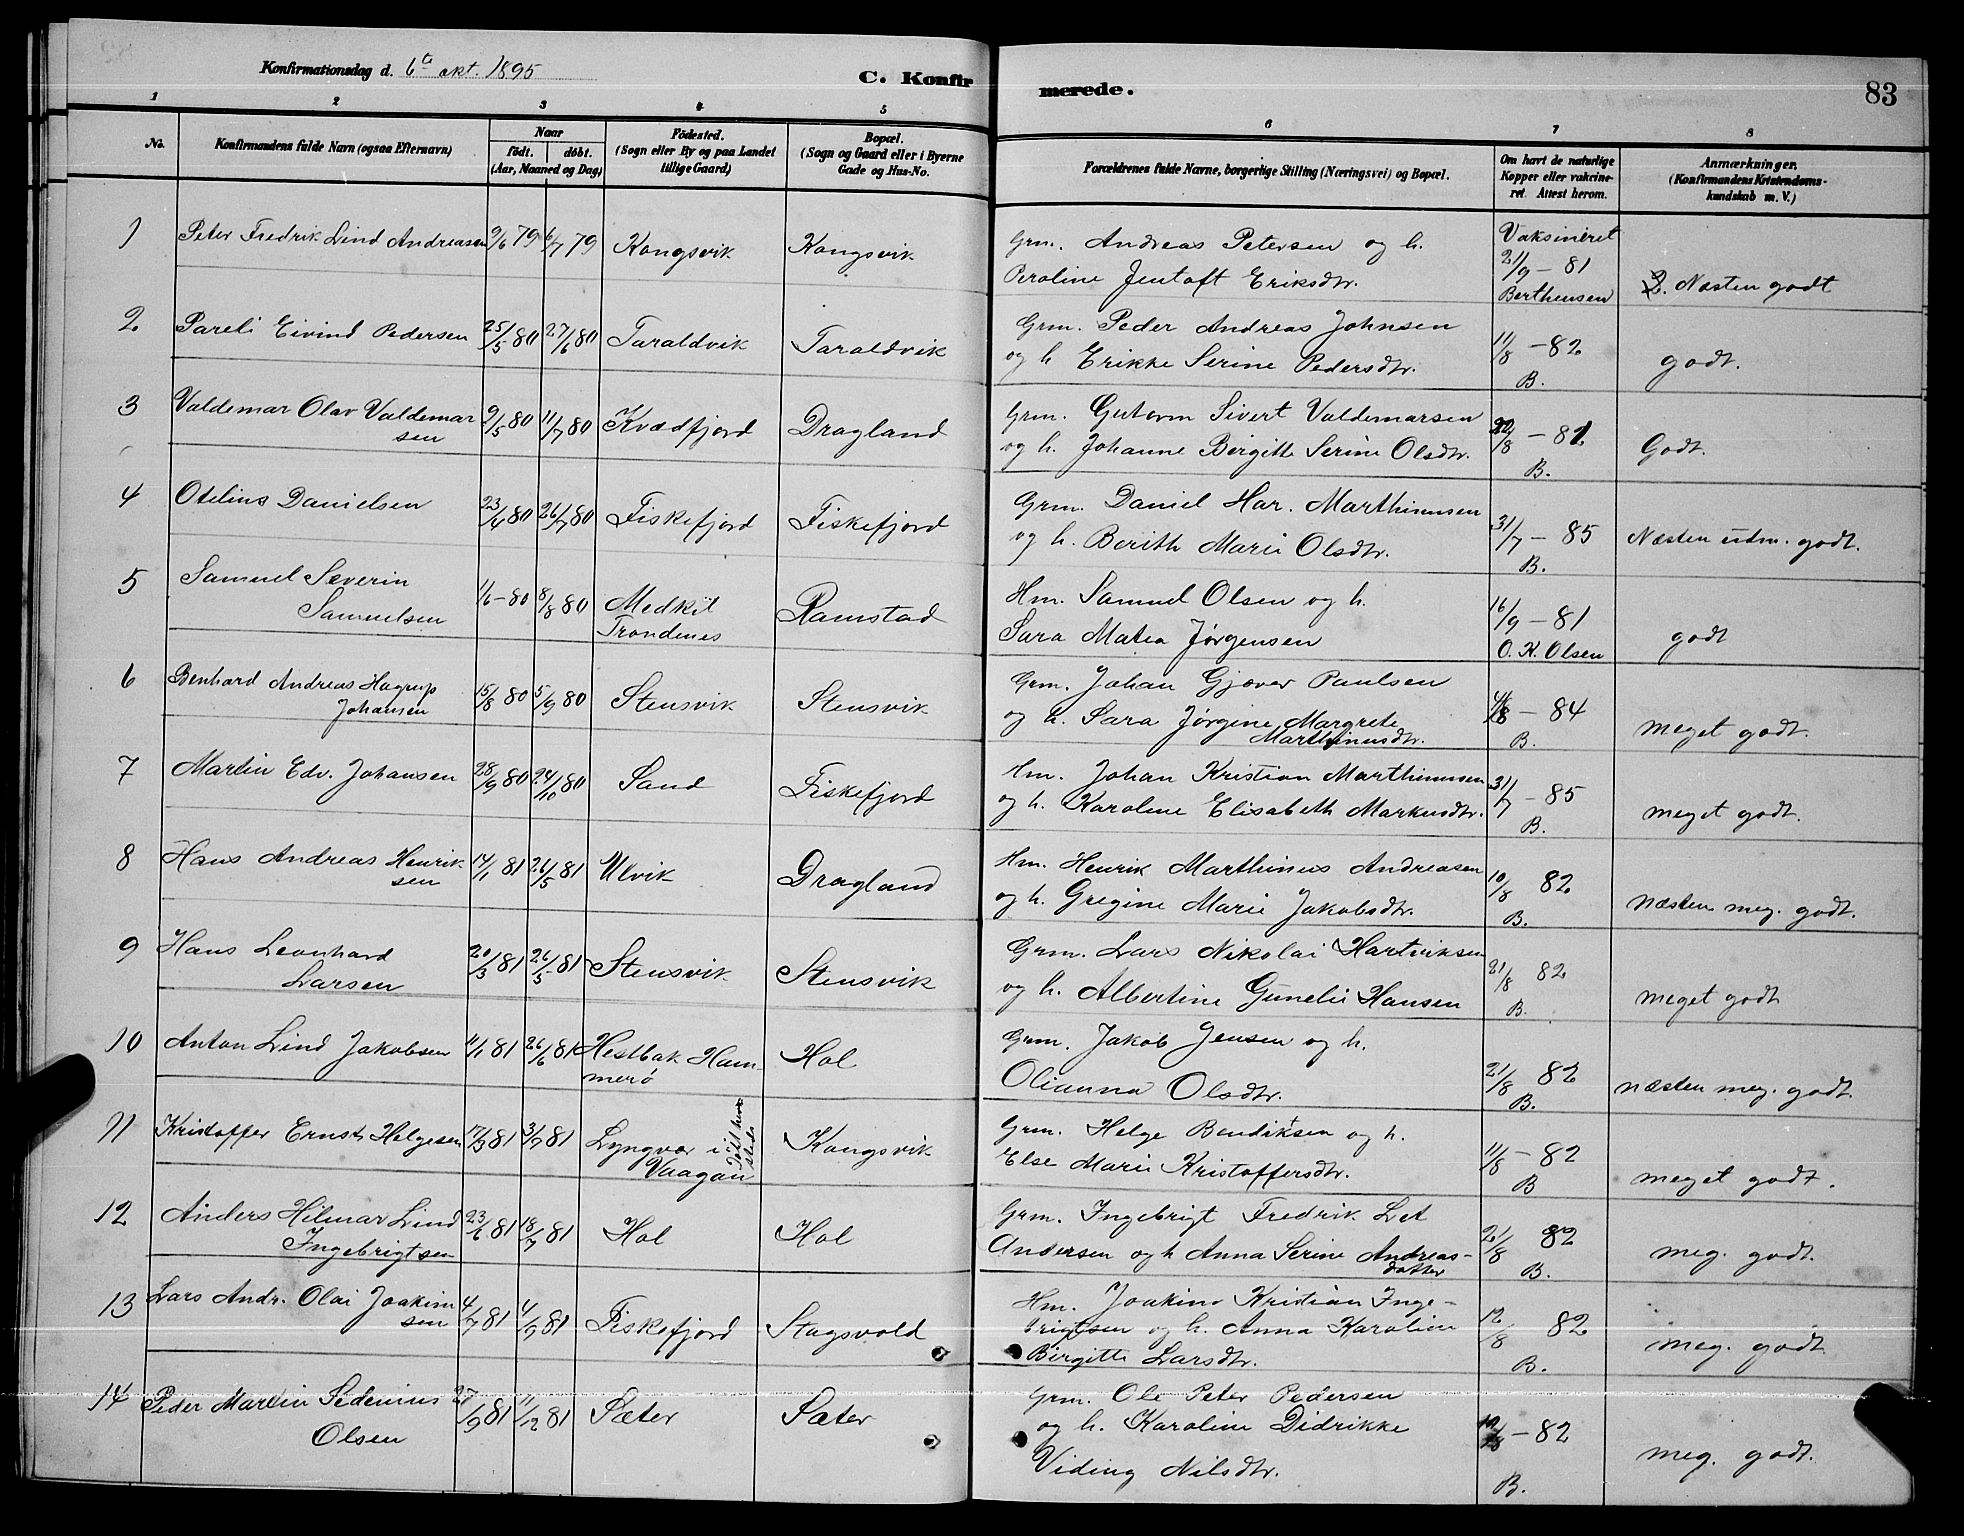 Konfirmationsdag d. 6te okt. 1895
C. Konfirmerede.
83
1 2 3 4 5 6 7 8
No. Konfirmandens fulde Navn (ogsaa Efternavn) Naar födt. döbt. (Aar, Maaned og Dag) Födested. (Sogn eller By og paa Landet tillige Gaard) Bopæl. (Sogn og Gaard eller i Byerne Gade og Hus-No. Forældrenes fulde Navne, borgerlige Stilling (Næringsvei) og Bopæl. Om havt de naturlige Kopper eller vakcineret. Attest herom. Anmærkninger. (Konfirmandens Kristendomskundskab m. V.)
1 Peter Fredrik Lind Andreasen 9/6 79 6/7 79 Kongsvik Kongsvik Grm. Andreas Petersen og h. Vaksineret
Peroline Jentoft Eriksdtr. 21/9 – 81 Berthensen 2. Næsten godt
2 Pareli Eivind Pedersen 25/5 80 27/6 80 Taraldvik Taraldvik Grm. Peder Andreas Johnsen 11/8 – 82
og h Erikke Serine Pedersdtr. B. godt.
3 Valdemar Olav Valdemar 9/5 80 11/7 80 Kvædfjord Dragland Grm. Gutorm Sivert Valdemarsen
sen og h. Johanne Birgitte Serine Olsdtr. B. Godt.
4 Otelius Danielsen 23/4 80 26/7 80 Fiskefjord Fiskefjord Grm. Daniel Har. Marthinusen 31/7 – 85
og h. Berith Marie Olsdtr. B. Næsten udm. godt.
5 Samuel Severin 1/6 – 80 8/8 80 Medkil Ramstad Hm. Samuel Olsen og h. 16/9 – 81
Samuelsen Trondenes Sara Matea Jörgensen O. K. Olsen godt
6 Benhard Andreas Hagrup 15/8 80 5/9 80 Stensvik Stensvik Grm. Johan Gjæver Paulsen
Johansen og h. Sara Jörgine Margrete – 84
Marthinusdtr. B. meget godt.
7 Martin Edv. Johansen 28/9 80 24/10 80 Sand Fiskefjord Hm. Johan Kristian Marthinusen 31/7 – 85
og h. Karoline Elisabeth Markusdtr. B. meget godt.
8 Hans Andreas Henrik 14/1 81 26/5 81 Ulvik Dragland Hm. Henrik Marthinus Andreasen 10/8 82
sen og h. Gregine Marie Jakobsdtr. B. næsten meg. godt.
9 Hans Leonhard 20/3 81 26/5 81 Stensvik Stensvik Grm. Lars Nikolai Hartviksen 21/8 82
Larsen og h. Albertine Gunelie Hansen B. meget godt
10 Anton Lind Jakobsen 11/1 81 26/6 81 Hestbak Ham- Hol Grm. Jakob Jensen og h.
merö Olianna Olsdtr. 21/8 82 B. næsten meg. godt.
11 Kristoffer Ernst Helgesen 17/3 81 3/7 81 Lyngvær i Kongsvik Grm. Helge Bendiktsen og h. 11/8 – 82
Vaagan Else Marie Kristoffersdtr. B meget godt.
12 Anders Hilmar Lind 23/6 81 18/7 81 Hol Hol Grm. Ingebrigt Fredrik Let 21/8 82
Ingebrigtsen Andersen og h Anna Serine Andreas- B. meg. godt.
datter
13 Lars Andr. Olai Joakim 4/7 81 4/9 81 Fiskefjord Stagsvold Hm. Joakim Kristian Inge-
sen brigtsen og h. Anna Karoline 12/8 82
Birgitte Larsdtr. B. meg. godt
14 Peder Martin Sedenius 25/9 81 11/12 81 Sæter Sæter Grm. Ole Peter Pedersen
Olsen og h. Karoline Didrikke – 82
Viding Nilsdtr. B. meg. godt.